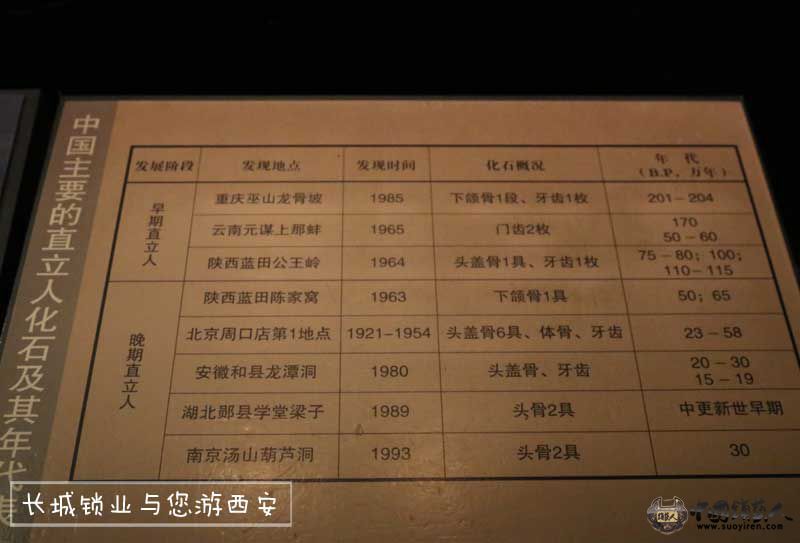 中国主要的直立人化石及其年代表
发展阶段 发现地点 发现时间 化石概况 年 代
(B.P, 万年)
早期直立人
重庆巫山龙骨坡 1985 下颌骨1段、牙齿1枚 201-204
云南元谋上那蚌 1965 门齿2枚 170
50-60
陕西蓝田公王岭 1964 头盖骨1具、牙齿1枚 75-80; 100;
110-115
晚期直立人
陕西蓝田陈家窝 1963 下颌骨1具 50; 65
北京周口店第1地点 1921-1954 头盖骨6具、体骨、牙齿 23-58
安徽和县龙潭洞 1980 头盖骨、牙齿 20-30
15-19
湖北郧县学堂梁子 1989 头骨2具 中更新世早期
南京汤山葫芦洞 1993 头骨2具 30
长城锁业与您游西安
www.suoyiren.com